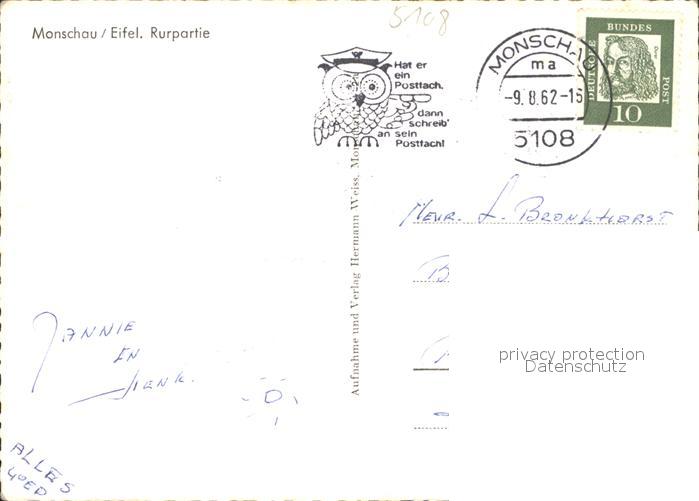 5108
Monschau / Eifel. Rurpartie
Hat er
ein
Postfach,
dann
schreib'
an sein
Postfach!
MONSCHAU
ma
-9.8.62-15
5108
DEUTSCHE
BUNDES
POST
Dürer
10
Mevr. L. Bronkhorst
B
Aufnahme und Verlag Hermann Weiss, Mon
JANNIE
EN
HENK.
ALLES
GOED
privacy protection
Datenschutz